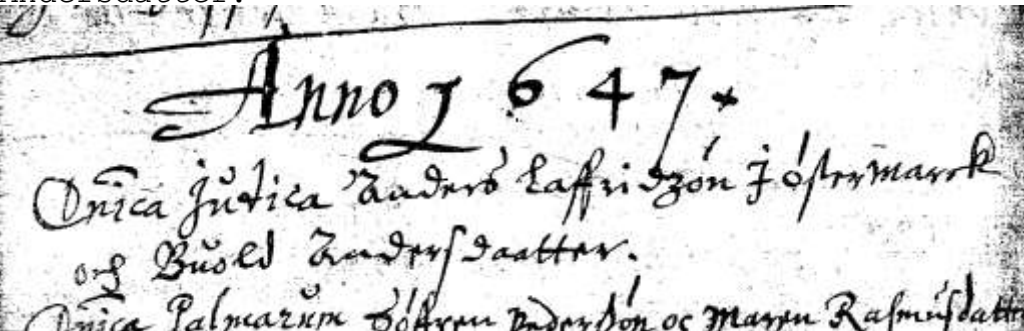 Anno 1647.
Dnica Judica Anders Laffridzøn J Østermarck
och Buold Andersdaatter.
Dnica Palmarum Søffren Pedersøn oc Maren Rasmusdatt